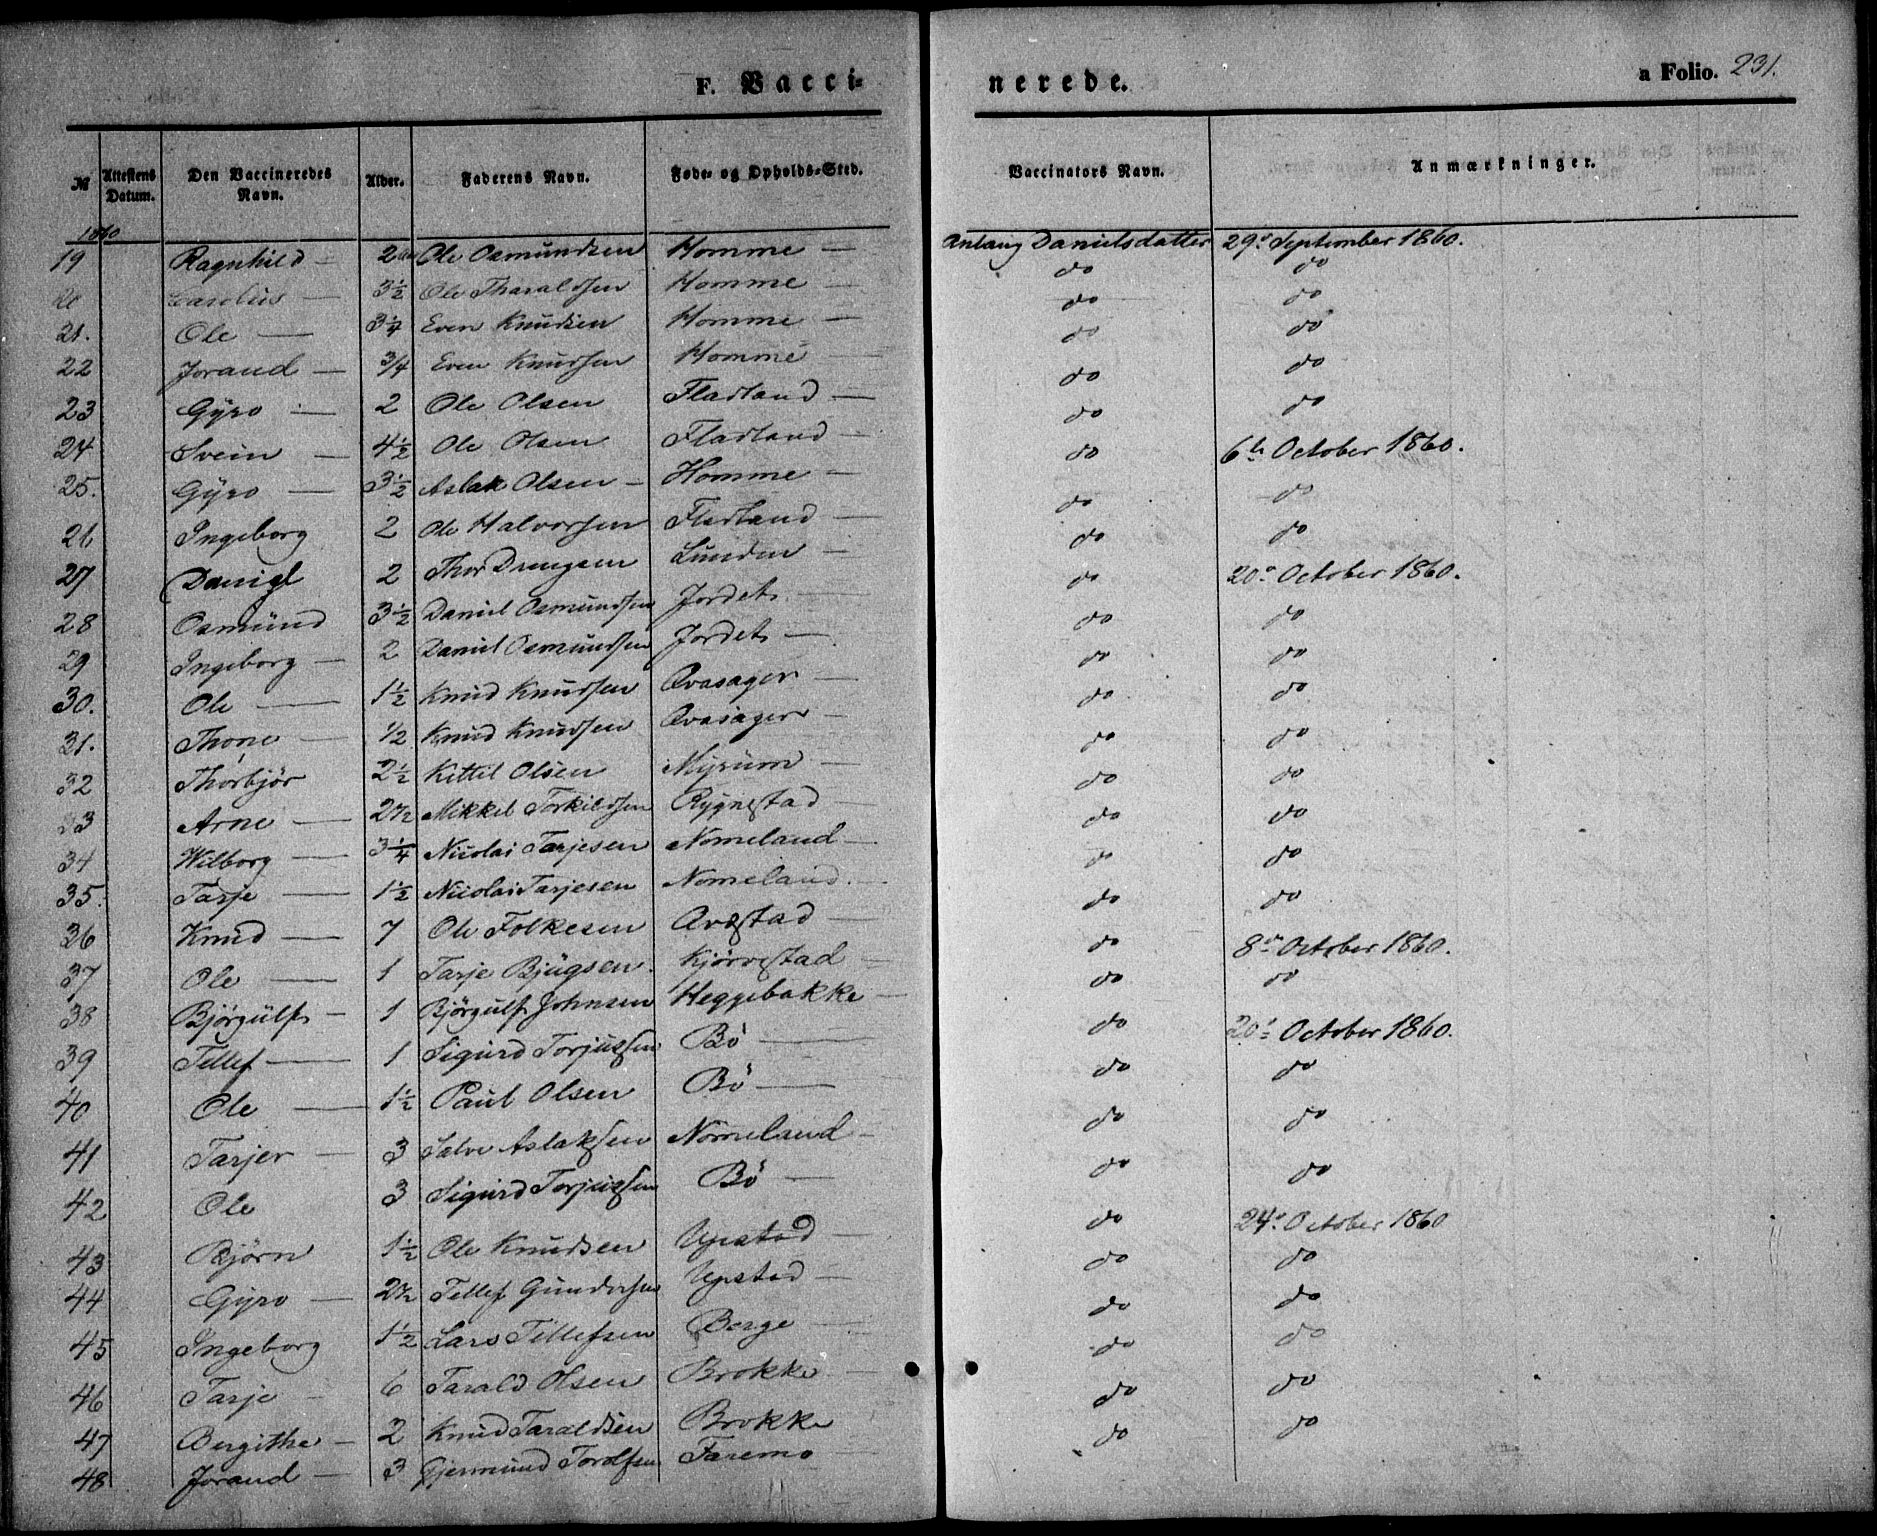 F. Vacci-
nerede.
a Folio. 231.
№ Attestens Datum. Den Vaccineredes Navn. Alder. Faderens Navn. Føde- og Opholds-Sted. Vaccinators Navn. Anmærkninger.
1860
19 Ragnhild — 2 Ole Osmundsen Homme — Danielsdatter 29 September 1860.
20 — 3½ Ole Tharaldsen Homme — do do
21. Ole — 3¼ Even Knudsen Homme — do do
22 Jorand — 3/4 Even Knudsen Homme — do do
23 Gyro — 2 Ole Olsen Fladland — do do
24 Svein — 4½ Ole Olsen Fladland — do do
25. Gyro — 3½ Aslak Olsen — Homme — do 6te October 1860.
26 Ingeborg 2 Ole Halvorsen Fladland — do do
27 Daniel 2 Thor Lunden — do do
28 Osmund 3½ Daniel Osmundsen Jordet — do 20 October 1860.
29 Ingeborg — 2 Daniel Osmundsen Jordet — do do
30. Ole — 1½ Knud Knudsen — do do
31. Thone — 1/2 Knud Knudsen — do do
32 Thorbjør 2½ Kittil Olsen Myrum — do do
33 Arne — 2½ Mikkel Torkildsen Rygnestad — do do
34 Wilborg — 3¼ Nicolai Tarjesen Nomeland — do do
35. Tarje — 1½ Nicolai Tarjesen Nomeland. — do do
36 Knud — 7 Ole Folkesen — do do
37 Ole — 1 Tarje Bjugsen. Kjørvestad — do 8 October 1860.
38 Bjørgulf — 1 Bjørgulf Johnsen Heggebakke — do do
39 Tellef — 1 Sigurd Torjussen Bø — do 20 October 1860.
40 Ole — 1½ Paul Olsen Bø — do do
41 Tarjer — 3 Salve Aslaksen Nomeland — do do
42 Ole 3 Sigurd Torjussen Bø — do do
43 Bjørn 1½ Ole Knudsen Upstad — do 24 October 1860
44 Gyro — 2½ Tellef Gundersen Upstad — do do
45 Ingeborg 1½ Lars Tellefsen Berge — do do
46 Tarje — 6 Tarald Olsen Brokke — do do
47 Bergithe — 2 Knud Taraldsen Brokke do do
48 Jorand — 3 Gjermund Torolfsen Faremo — do do